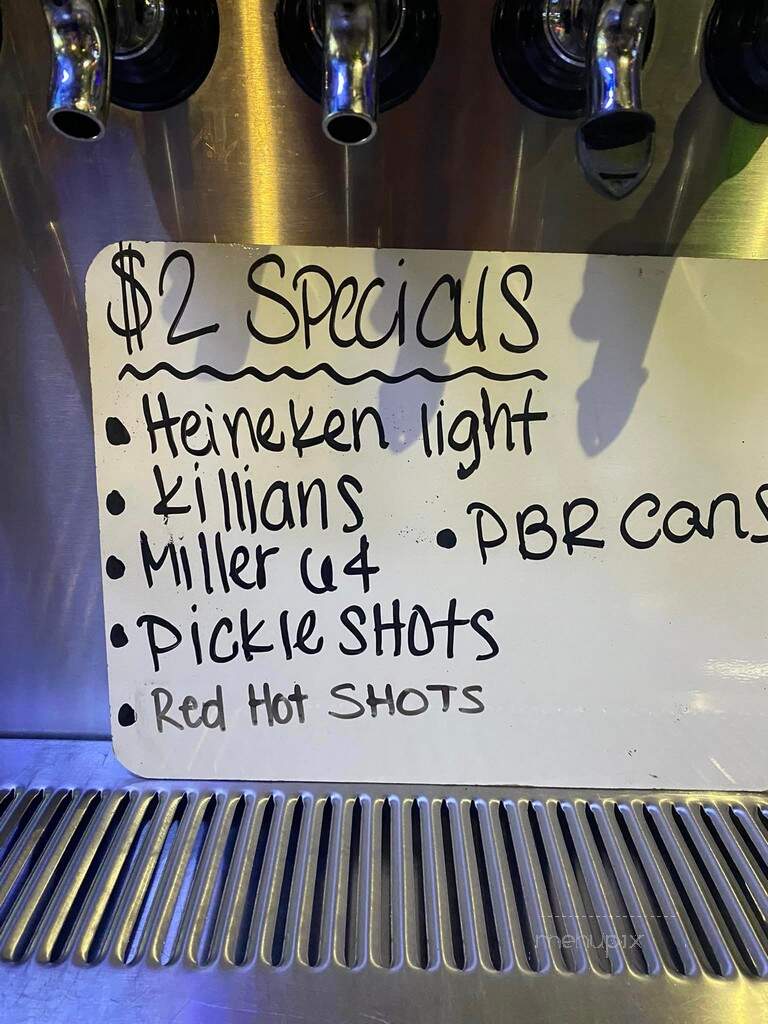 $2 Specials
• Heineken light
• Killians
• PBR cans
• Miller 64
• Pickle SHOts
• Red Hot SHOTS
menupix